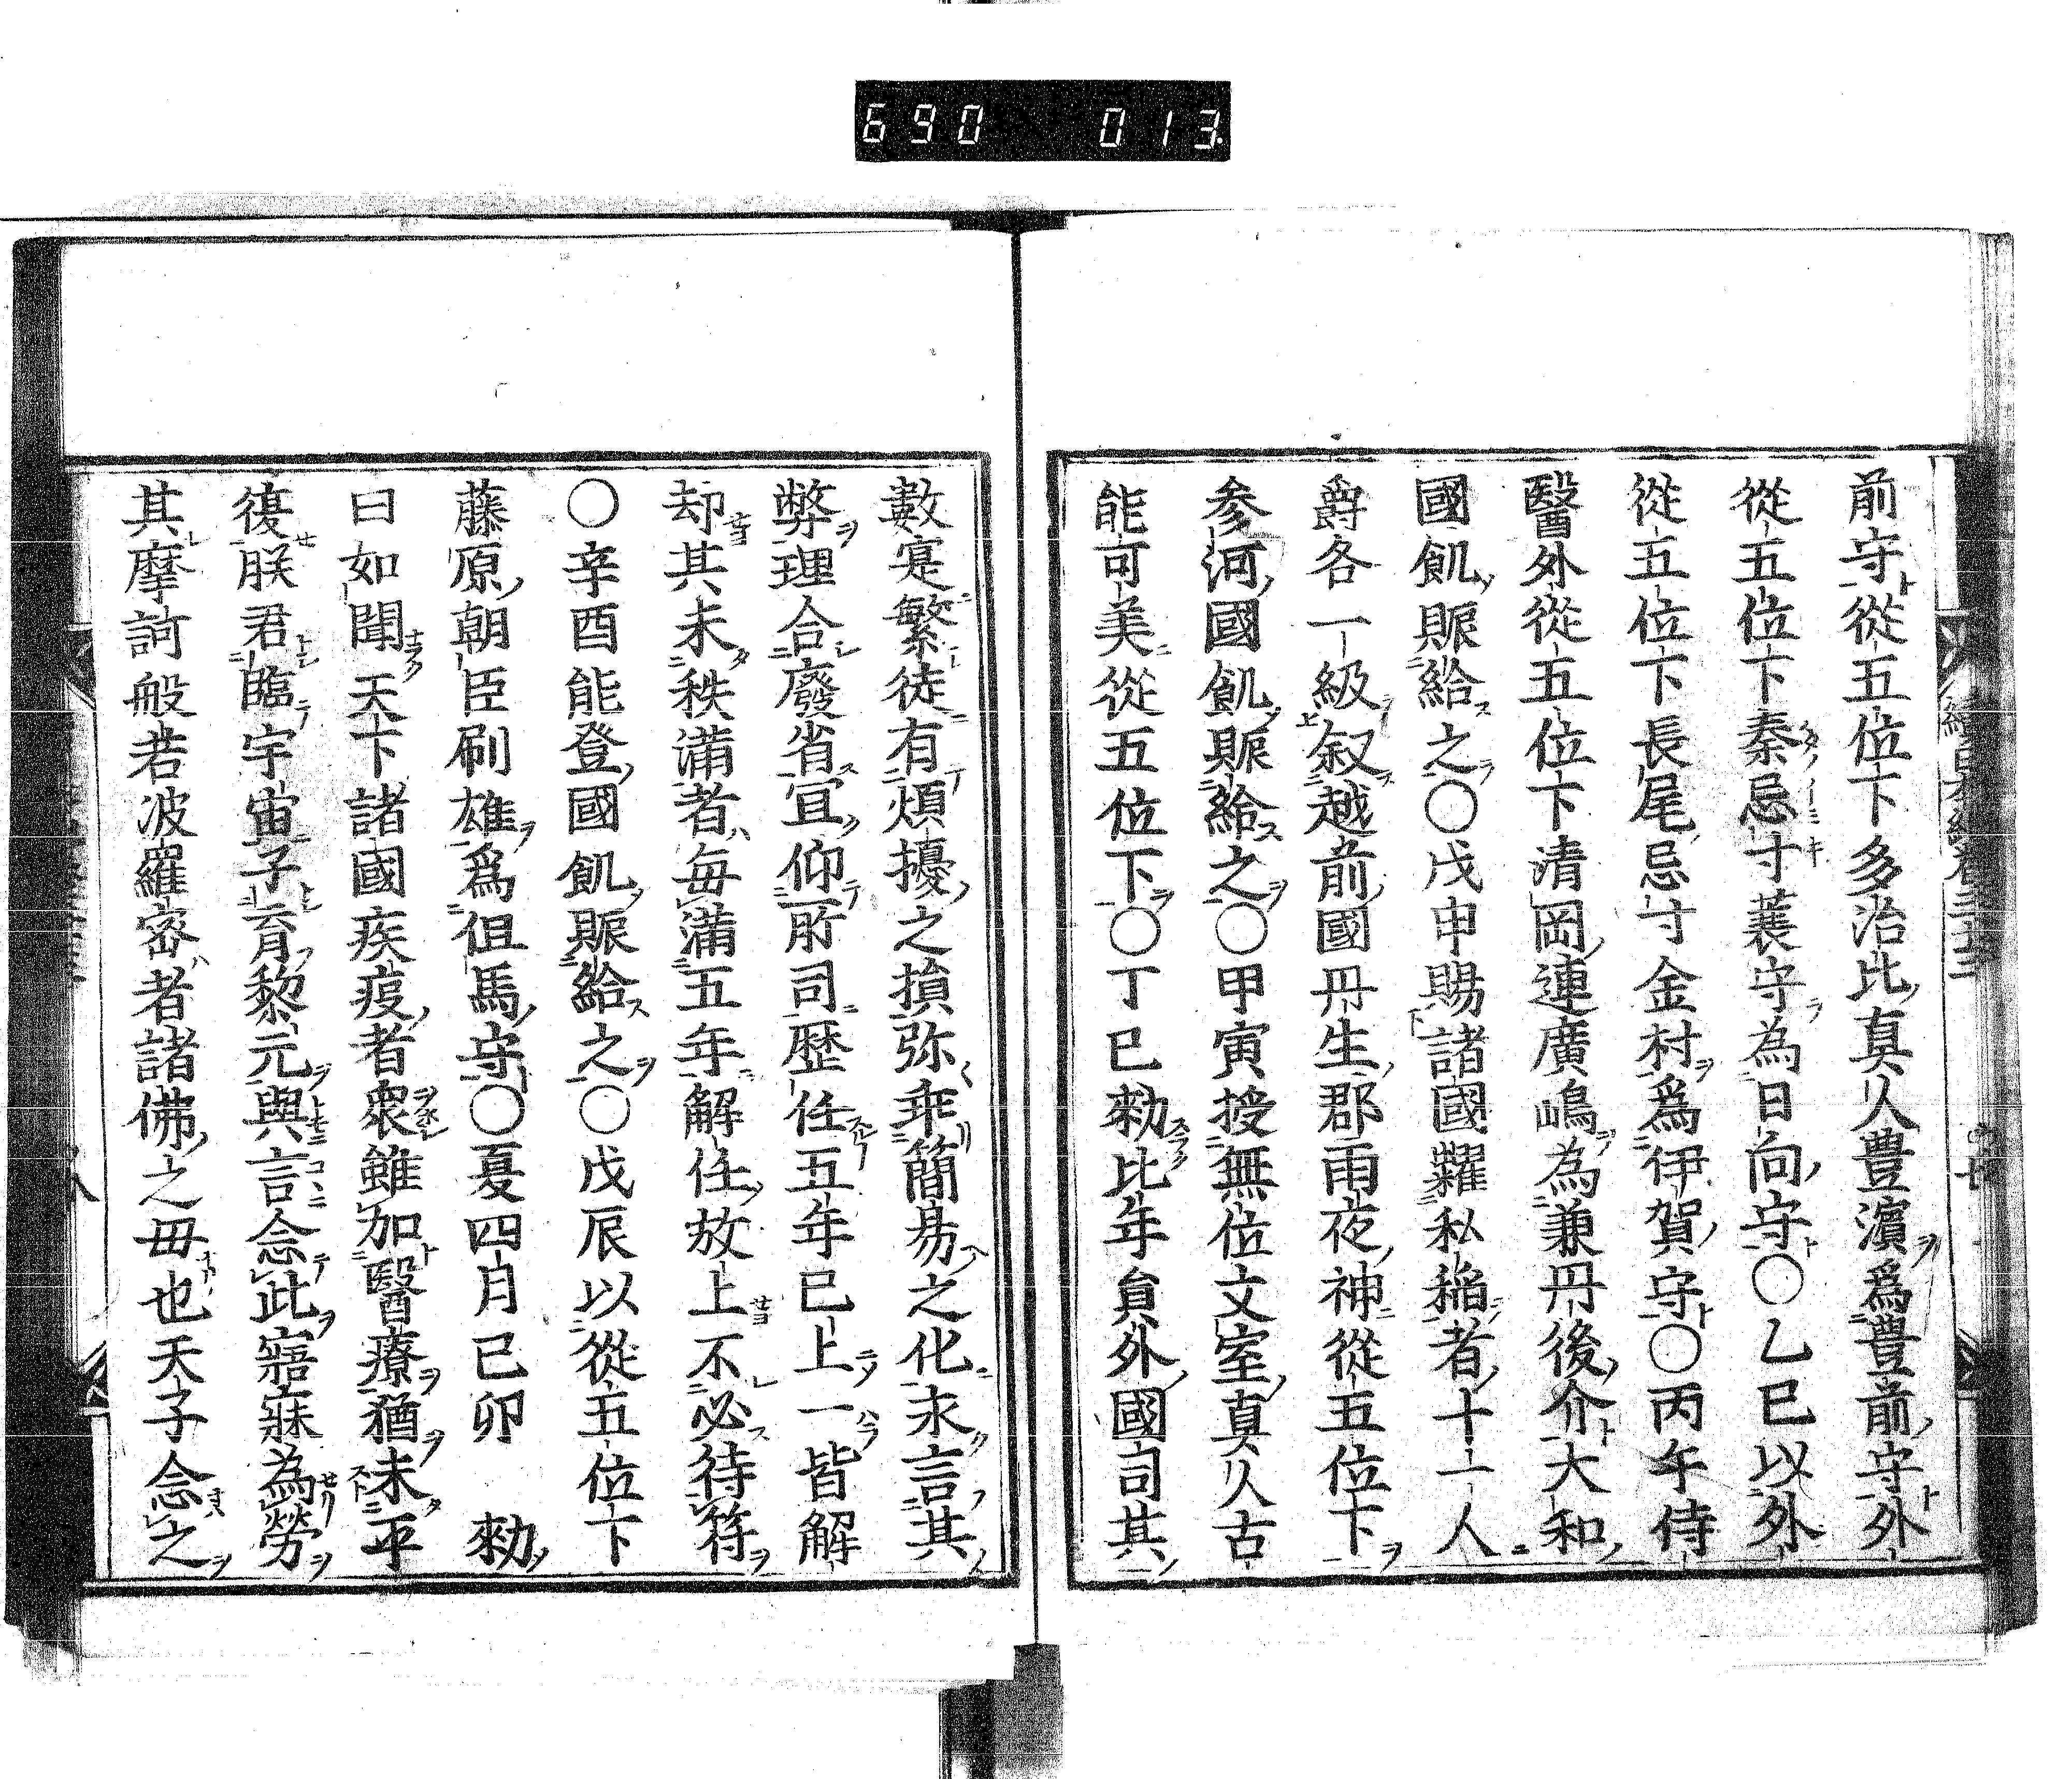 690 013
前守從五位下多治比真人豊濵爲豊前守外
從五位下秦忌寸蓑守為日向守〇乙巳以外
從五位下長尾忌寸金村爲伊賀守〇丙午侍
醫外從五位下清岡連廣嶋為兼丹後介大和
國飢賑給之〇戊申賜諸國糶私稲者十一人
爵各一級叙越前國丹生郡雨夜神從五位下
參河國飢賑給之〇甲寅授無位文室真人古
能可美從五位下〇丁巳勑比年員外國司其
數寔繁徒有煩擾之損弥乖簡易之化永言其
弊理合廢省冝仰所司歴任五年已上一皆解
却其未秩滿者毎滿五年解任放上不必待符
〇辛酉能登國飢賑給之〇戊辰以從五位下
藤原朝臣刷雄爲但馬守〇夏四月己卯 勑
曰如聞天下諸國疾疫者衆雖加醫療猶未平
復朕君臨宇宙子育黎元與言念此寤寐為勞
其摩訶般若波羅密者諸佛之毋也天子念之